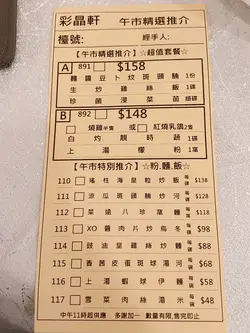 彩晶軒 午市精選推介
檯號: 經手人:
【午市精選推介】☆超值套餐☆
A 891 $158
麵醬豆卜炆斑頭腩 1份
生炒雞絲飯 1碟
珍菌浸菜苗 細碟
B 892 $148
燒雞半隻 或 紅燒乳鴿2隻
白灼靚時蔬 1碟
上湯檬粉 1窩
【午市特別推介】☆粉.麵.飯☆
110 瑤柱海皇粒炒飯 每碟 $138
111 涼瓜斑頭腩炒河 每碟 $128
112 菜遠八珍窩麵 每窩 $118
113 XO醬肉片炒烏冬 每碟 $98
114 豉油皇雞絲炒麵 每碟 $88
115 香茜皮蛋斑球湯河 每碗 $68
116 上湯蝦球伊麵 每碗 $58
117 雪菜肉絲湯米 每碗 $48
中午11時起供應 多謝加一 數量有限,售完即止